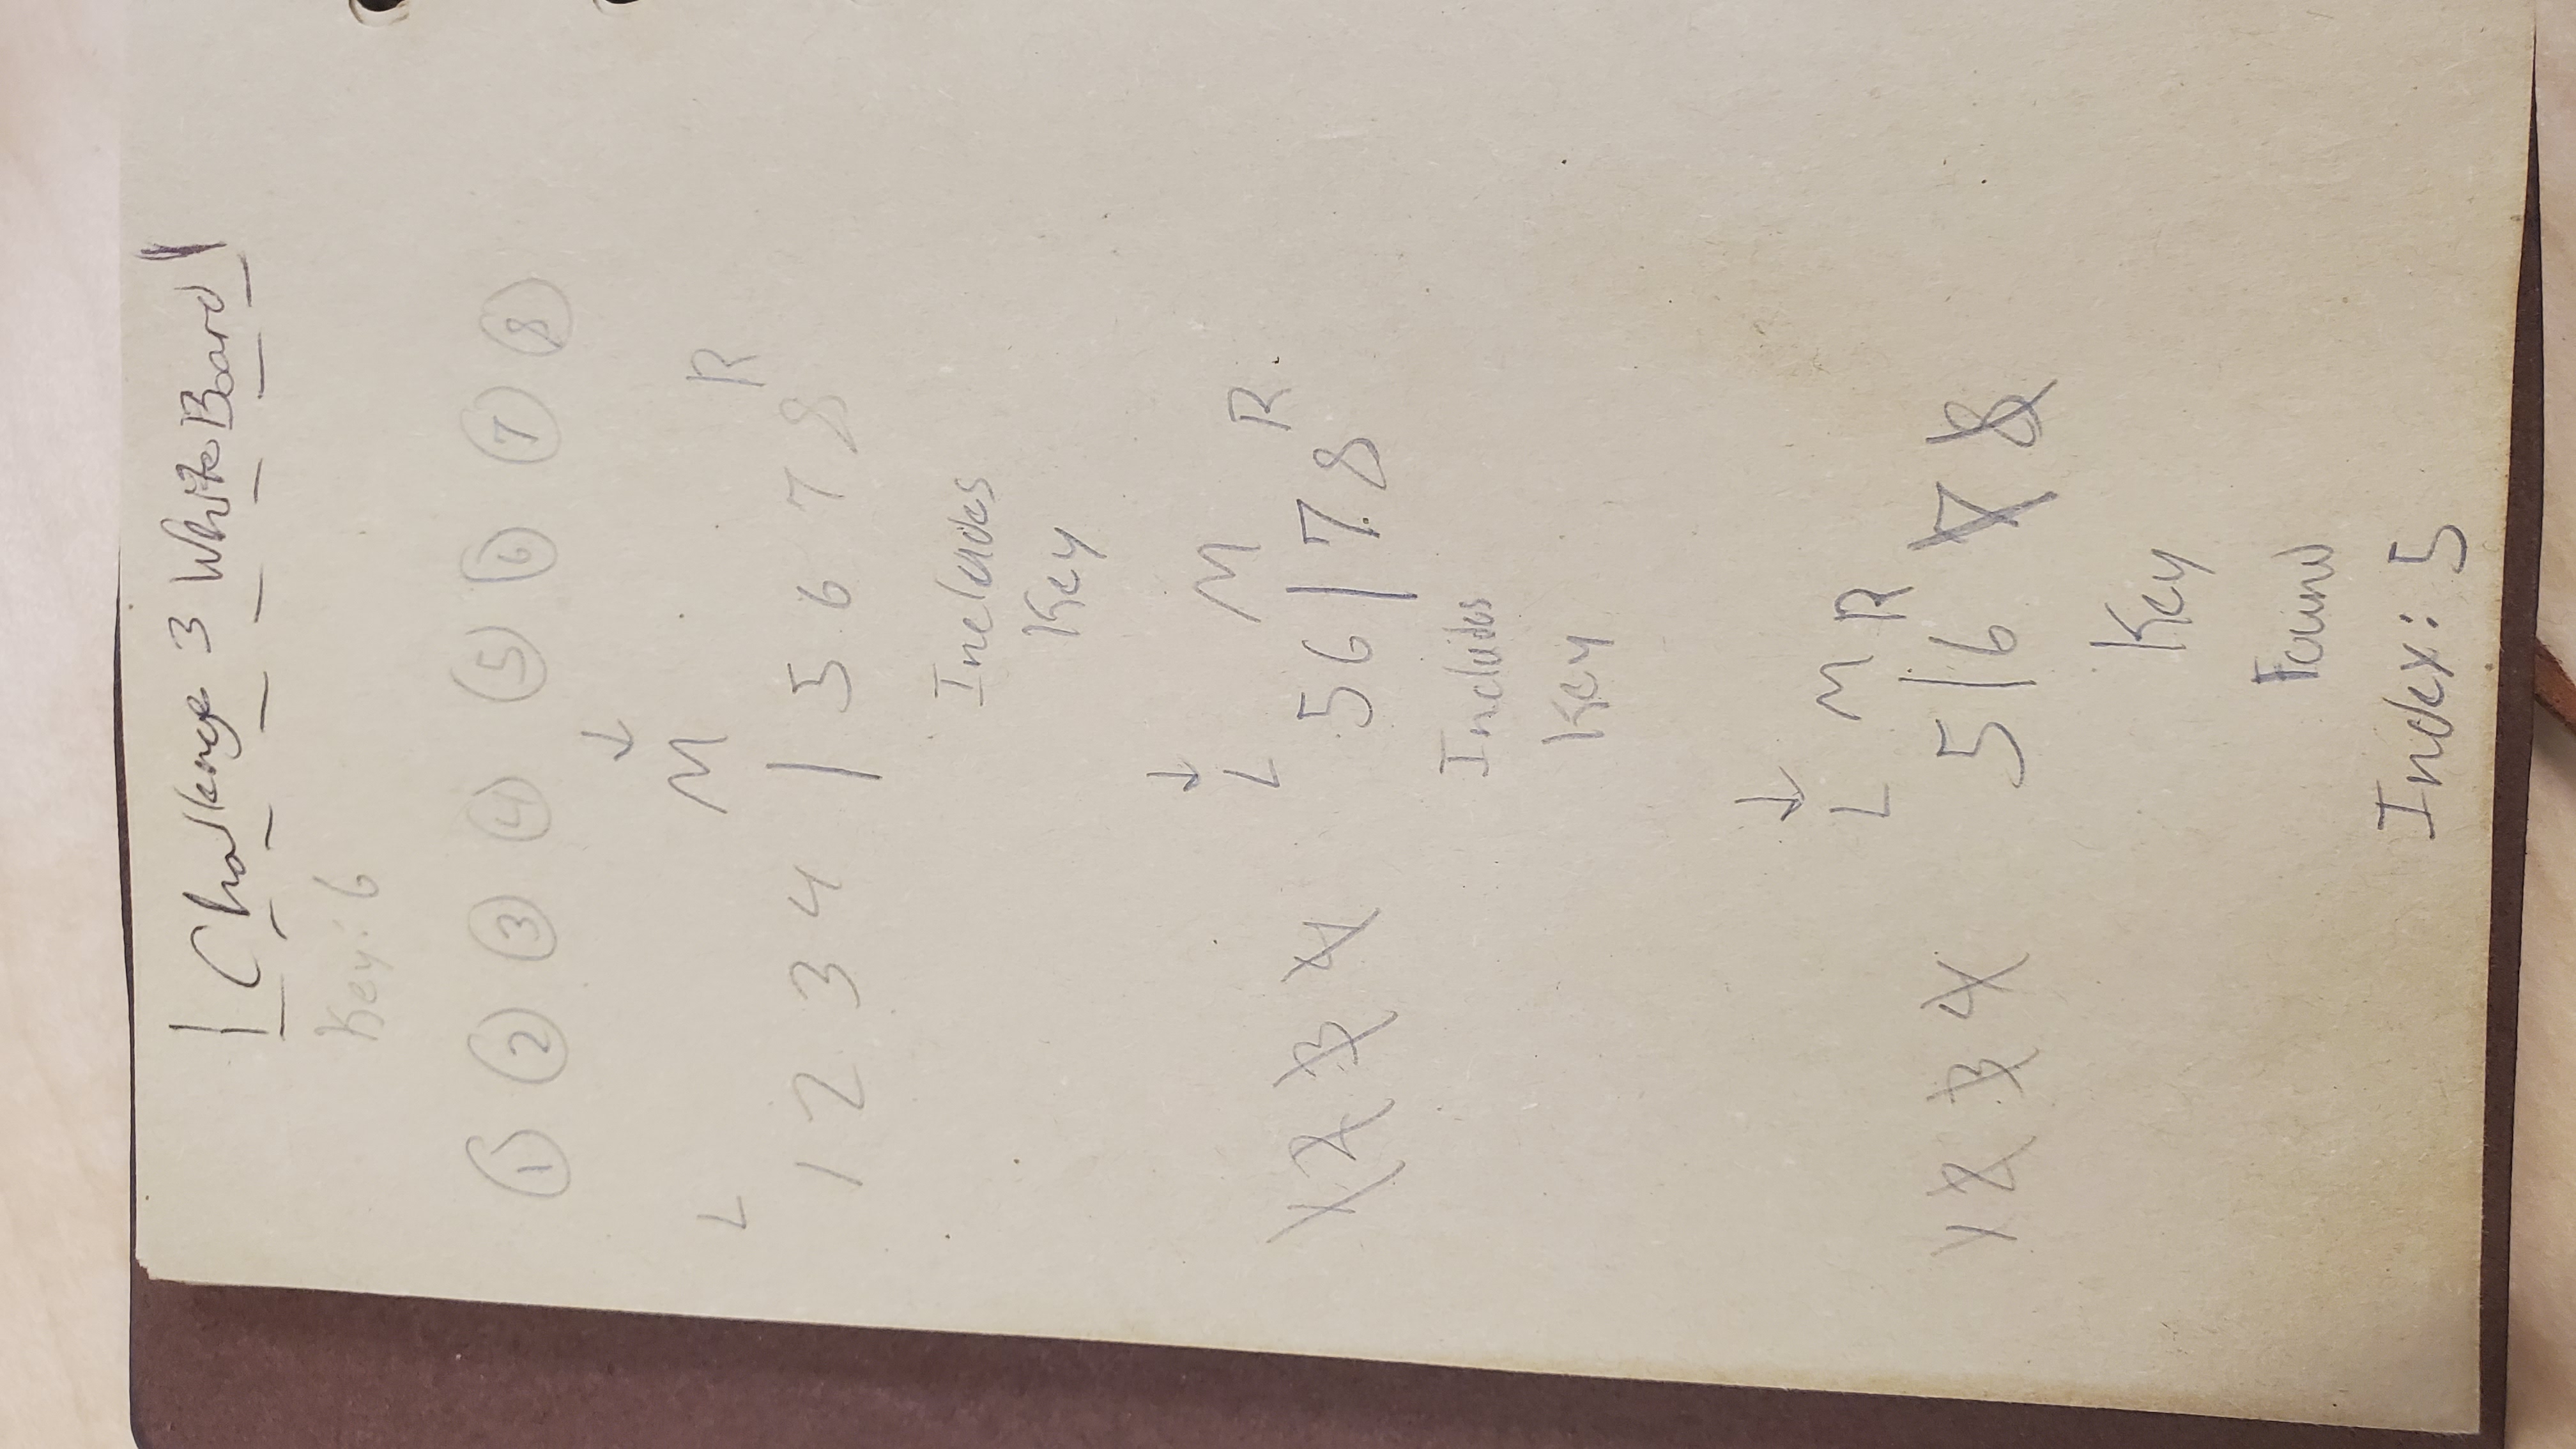 Challenge 3 WhiteBoard
Key: 6
1 2 3 4 5 6 7 8
L M R
1 2 3 4 | 5 6 7 8
Includes
Key
L M R
1 2 3 4 5 6 | 7 8
Includes
Key
L M R
1 2 3 4 5 | 6 7 8
Key
Found
Index: 5